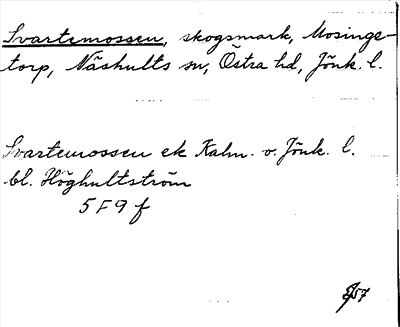 Svartemossen, skogsmark, Mosings-
torp, Näshults sn, Östra hd, Jönk. l.
Svartemossen ek Kalm. o. Jönk. l.
bl. Höghultström
5F9 f
57